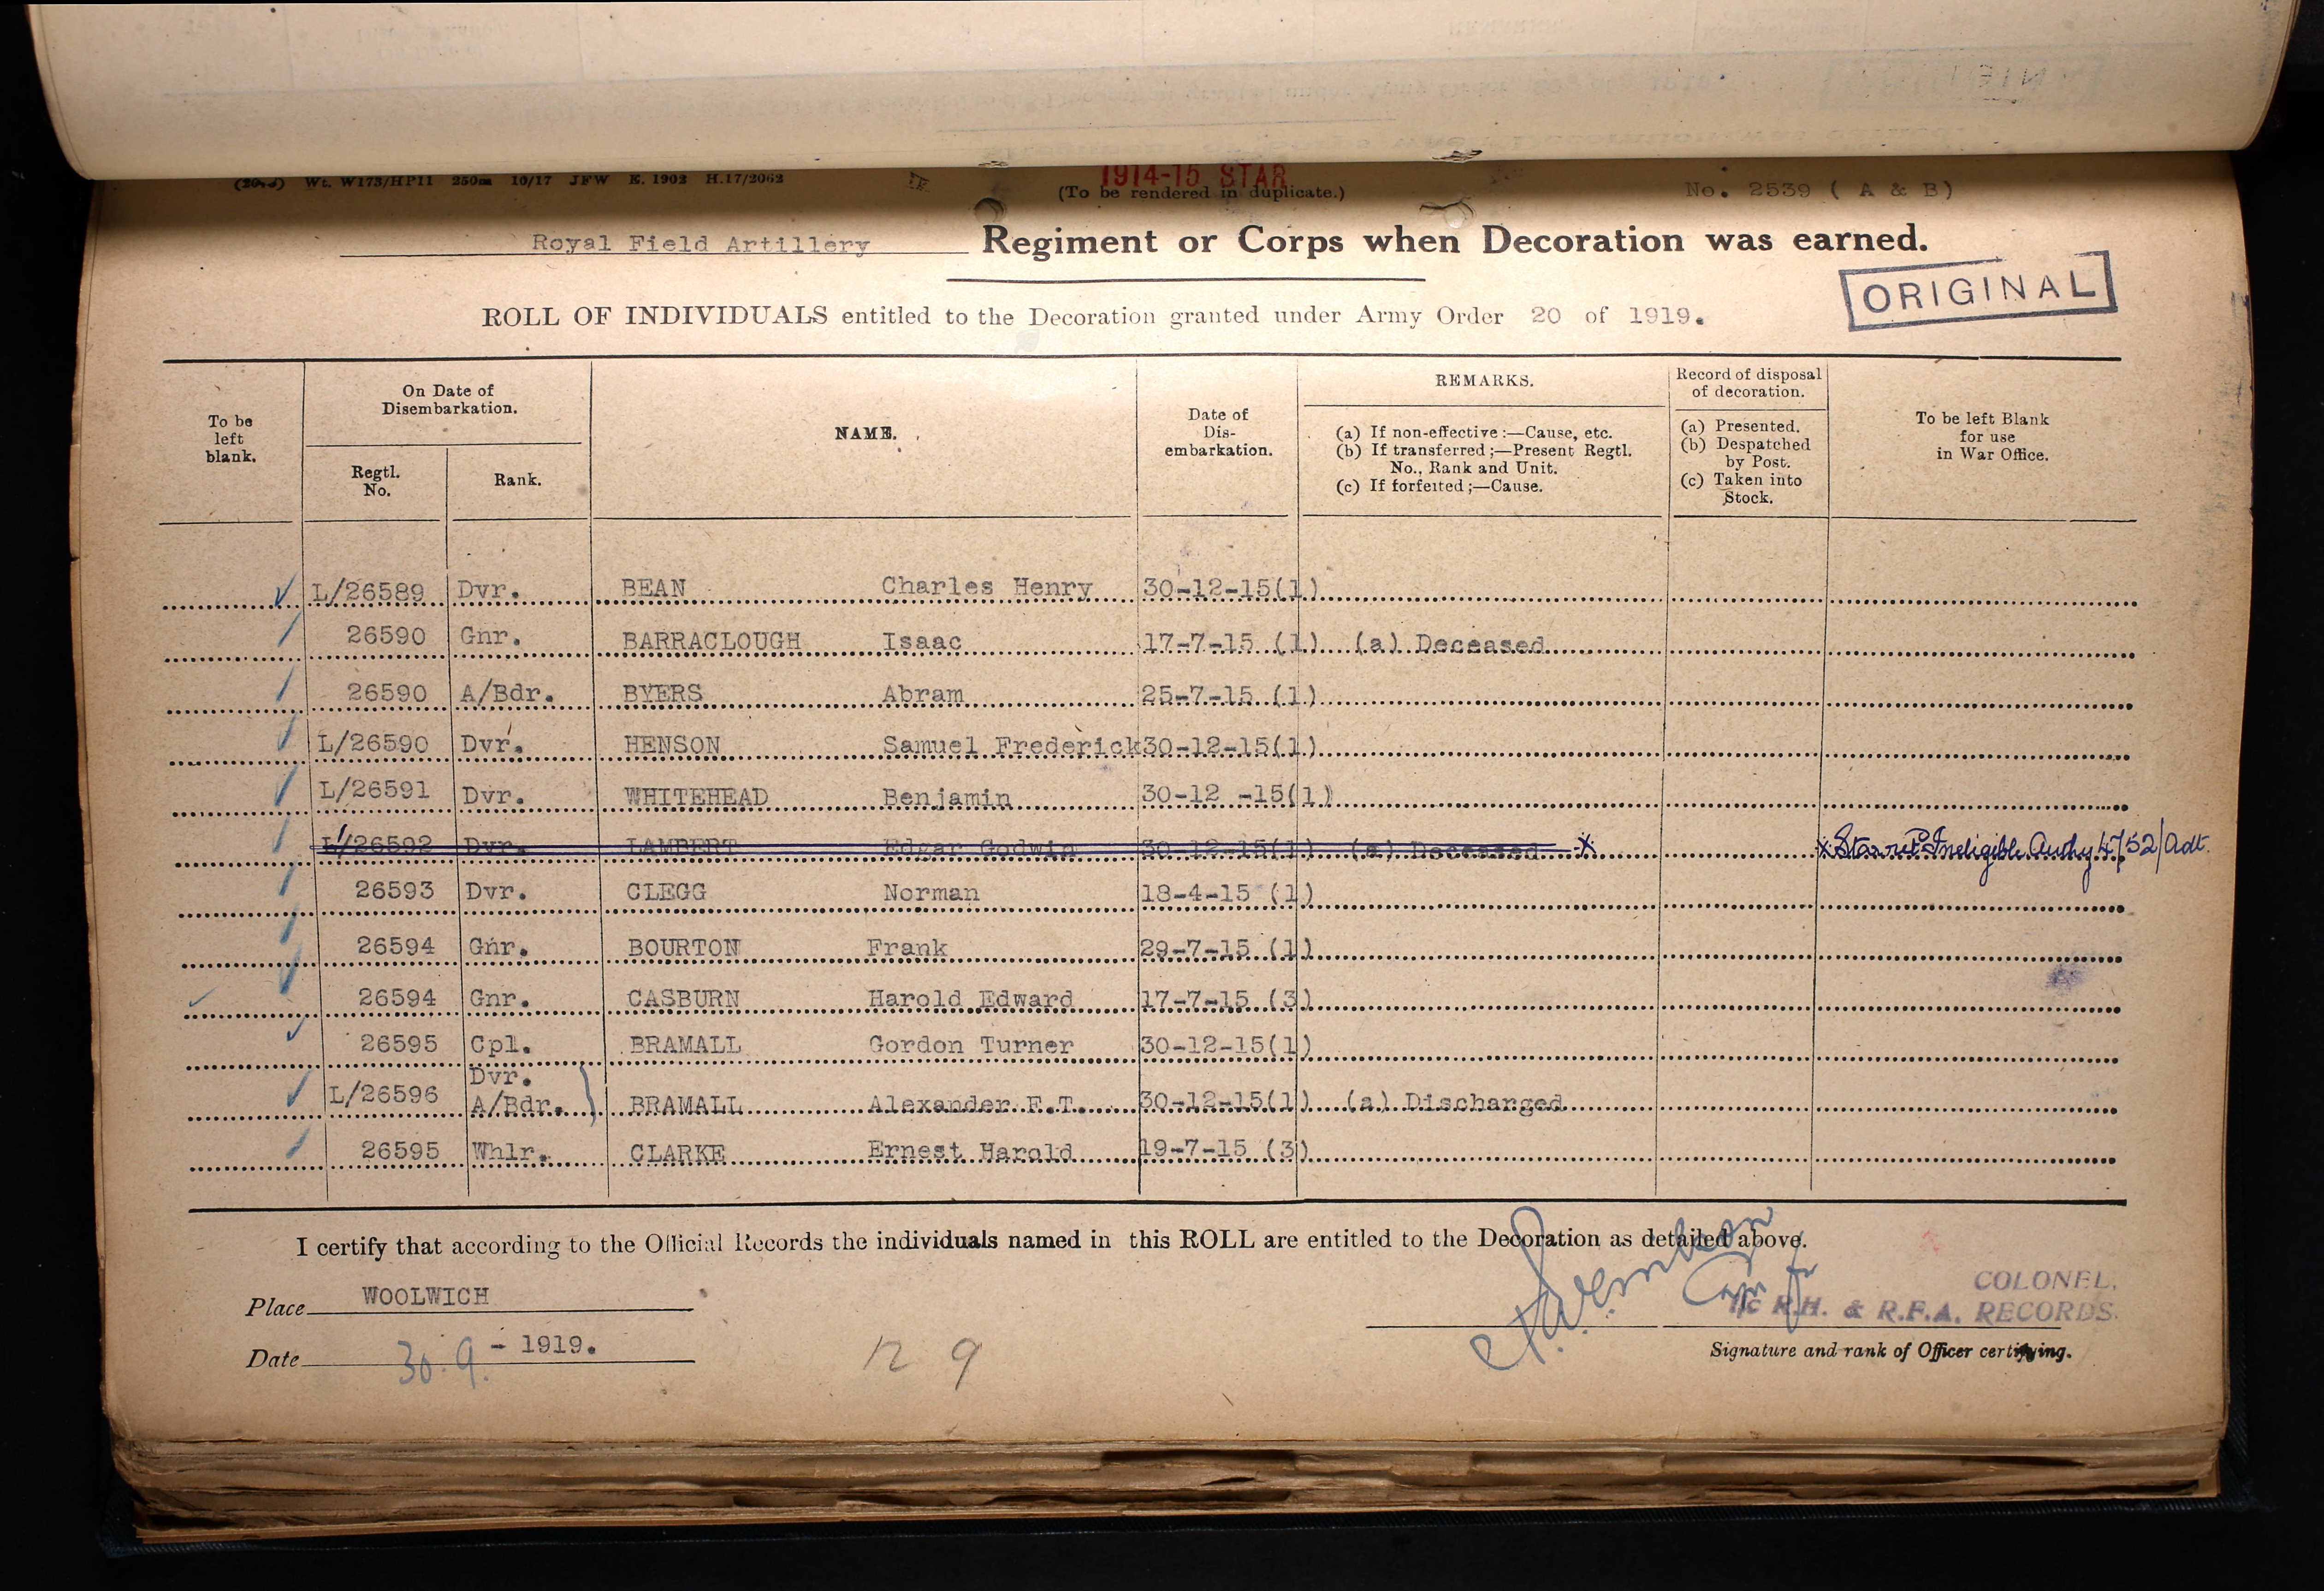 (20 d) Wt. W173/HP11 250m 10/17 JFW E. 1902 H.17/2062
1914-15 STAR
(To be rendered in duplicate.)
No. 2539 ( A & B)
Royal Field Artillery Regiment or Corps when Decoration was earned.
ORIGINAL
ROLL OF INDIVIDUALS entitled to the Decoration granted under Army Order 20 of 1919.
To be left blank.
On Date of Disembarkation.
Regtl. No.
Rank.
NAME.
Date of Dis- embarkation.
REMARKS.
(a) If non-effective :—Cause, etc.
(b) If transferred ;—Present Regtl. No., Rank and Unit.
(c) If forfeited ;—Cause.
Record of disposal of decoration.
(a) Presented.
(b) Despatched by Post.
(c) Taken into Stock.
To be left Blank for use in War Office.
L/26589 Dvr. BEAN Charles Henry 30-12-15(1)
26590 Gnr. BARRACLOUGH Isaac 17-7-15 (1) (a) Deceased
26590 A/Bdr. BYERS Abram 25-7-15 (1)
L/26590 Dvr. HENSON Samuel Frederick 30-12-15(1)
L/26591 Dvr. WHITEHEAD Benjamin 30-12 -15(1)
L/26592 Dvr. LAMBERT Edgar Godwin 30-12-15(1) (a) Deceased x x Star Ineligible Authy 4752/Adt.
26593 Dvr. CLEGG Norman 18-4-15 (1)
26594 Gnr. BOURTON Frank 29-7-15 (1)
26594 Gnr. CASBURN Harold Edward 17-7-15 (3)
26595 Cpl. BRAMALL Gordon Turner 30-12-15(1)
Dvr.
L/26596 A/Bdr. BRAMALL Alexander F.T. 30-12-15(1) (a) Discharged
26595 Whlr. CLARKE Ernest Harold 19-7-15 (3)
I certify that according to the Official Records the individuals named in this ROLL are entitled to the Decoration as detailed above.
Place WOOLWICH
Date 30.9. - 1919.
12 9
COLONEL,
I/c R.H. & R.F.A. RECORDS.
Signature and rank of Officer certifying.